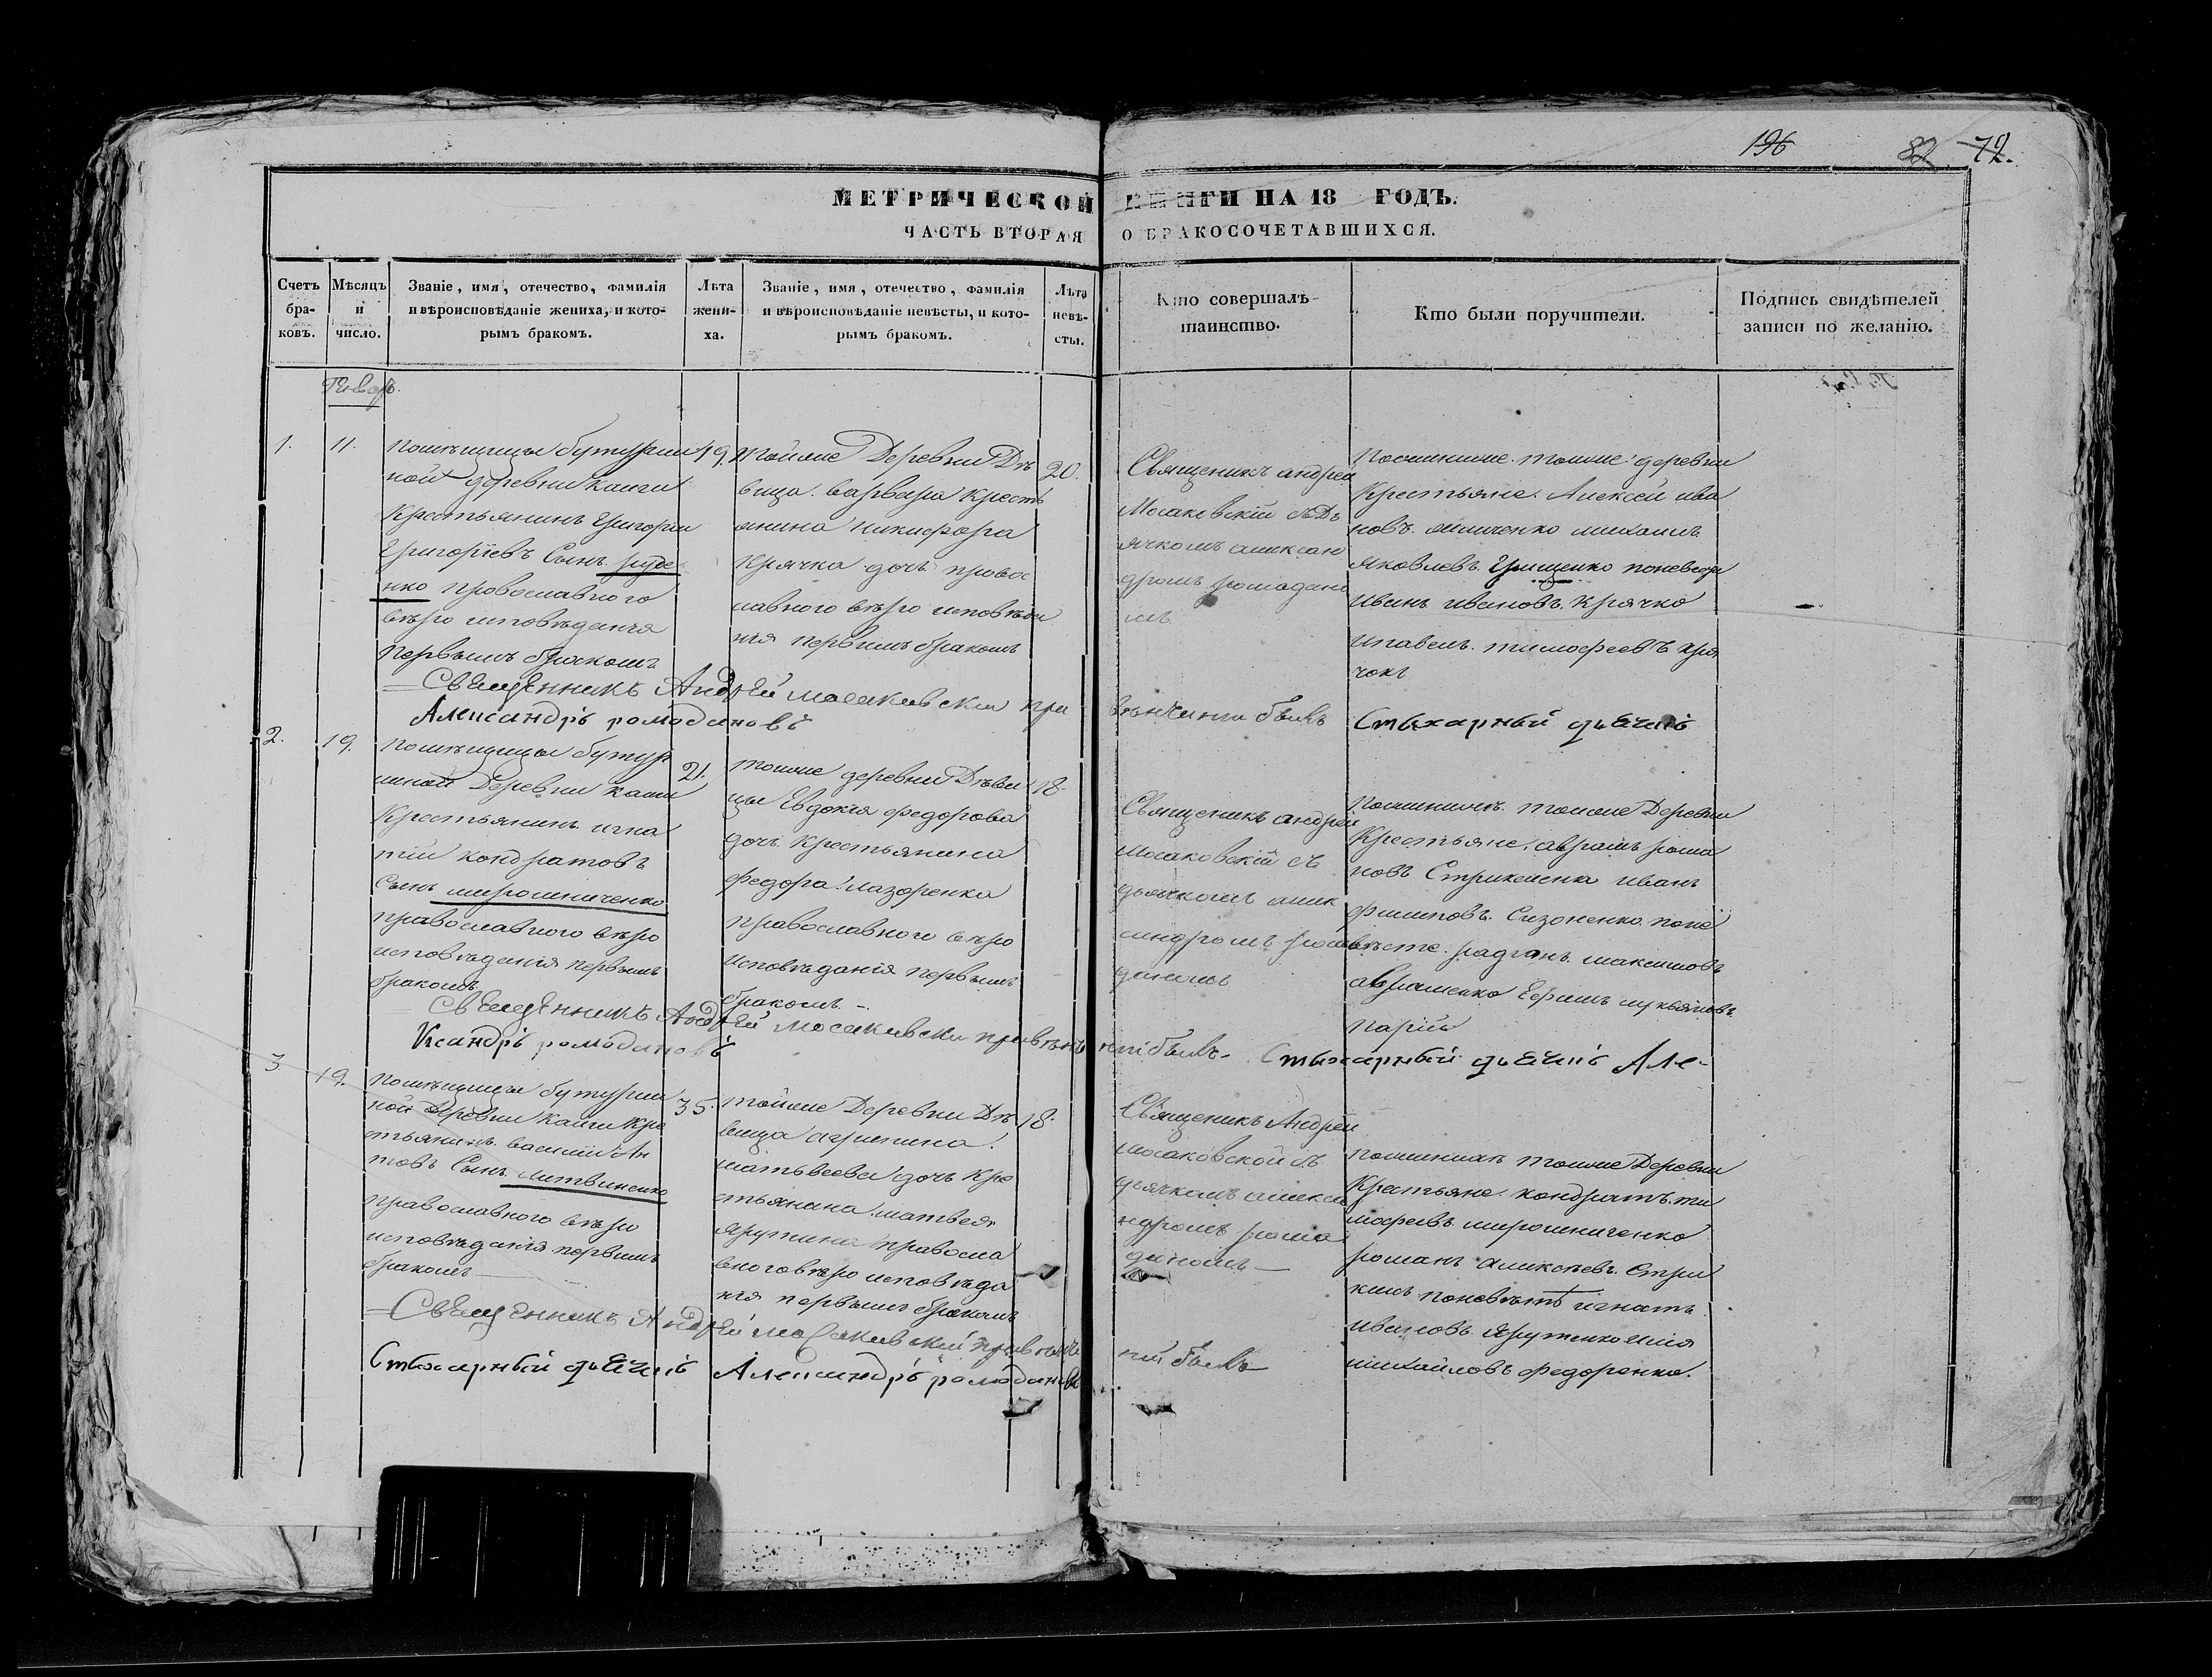 196 82 72.
МЕТРИЧЕСКОЙ КНИГИ НА 18 ГОДЪ.
ЧАСТЬ ВТОРАЯ О БРАКОСОЧЕТАВШИХСЯ.
Счетъ бра-ковъ.
Мѣсяцъ и число.
Званіе, имя, отечество, фамилія
и вѣроисповѣданіе жениха, и кото-
рымъ бракомъ.
Лѣта жени-ха.
Званіе, имя, отечество, фамилія
и вѣроисповѣданіе невѣсты, и кото-
рымъ бракомъ.
Лѣта невѣ-сты.
Кто совершалъ
таинство.
Кто были поручители.
Подпись свидѣтелей
записи по желанію.
Генварь.
1.
11.
Помѣщицы бутурли
ной деревни
Крестьянинъ Григории
Григоріевъ Сынъ
нко провославного
вѣро исповѣданія
Первымъ бракомъ
19.
Тойже Деревни Дѣ
вица варвара Кресть
янина никифора
Крячка дочь правос
лавного вѣро исповѣда
нія первимъ бракомъ
20.
Священикъ андреи
Мосаковскій съ Дь
ячкомъ алексан
дромъ ромодано
мъ
тойже деревни
Крестьяне Алексей ива
новъ михаилъ
Яковлевъ Грищенко поневѣсте
Иванъ ивановъ Крячко
ипавелъ тимофеевъ кря
чокъ
Священникъ Андрей мосаковски при
вѣнчании былъ Стихарный дьячикъ
Александръ ромодановъ
2.
19.
Помѣщицы бутур
линой Деревни
Крестьянинъ игна
тіи кондратовъ
Сынъ мирошниченко
православного вѣро
исповѣданія первымъ
бракомъ
21.
тойже деревни Дѣви
цы Евдокія федорова
дочь Крестьянина
федора лазоренка
православного вѣро
исповѣданія первымъ
бракомъ
18.
Священикъ андреи
Мосаковскій съ
дьячкомъ алек
сандромъ ромо
даномъ
тойже Деревни
Крестьяне аврамъ рома
новъ иванъ
филиповъ Сизоненко поне
вѣсте радіонъ максимовъ
авраменко Ефимъ лукьяновъ
Священникъ Андрей мосаковски при вѣнча
ніи былъ Стихарный дьячикъ Але-
ксандръ ромодановъ
3
19.
Помѣщицы бутурли
ной Деревни Кре
стьянинъ василій Ан
товъ Сынъ литвиненко
православного вѣро
исповѣданія первымъ
бракомъ
35.
тойже Деревни Дѣ
вица агрипина
матвеева дочь Кре
стьянина матвея
православного вѣро исповѣда
нія первымъ бракомъ
18.
Священикъ Андреи
мосаковской съ
дьячкомъ алекса
ндромъ ромо
даномъ
тойже Деревни
Крестьяне кондратъ ти
мофеевъ мирошниченко
романъ алексеевъ
поневѣстѣ игнатъ
ивановъ илія
михайловъ федоренко.
Священникъ Андрей мосаковскій при вѣнча
ніи былъ
Стихарный дьячикъ Александръ ромодановъ